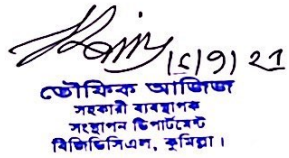 ১৫/৯/২১
তৌফিক আজিজ
সহকারী ব্যবস্থাপক
সংস্থাপন ডিপার্টমেন্ট
বিজিডিসিএল, কুমিল্লা।